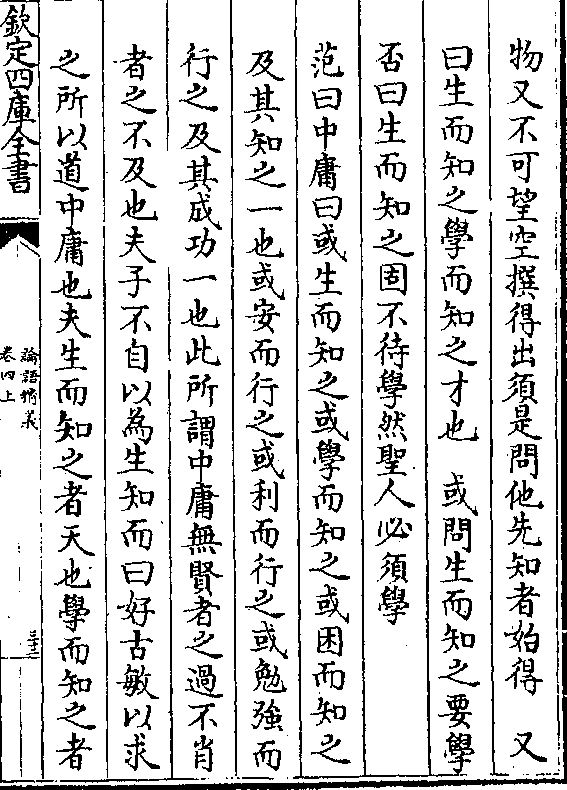 物又不可望空撰得出須是問他先知者始得　又
曰生而知之學而知之才也　或問生而知之要學
否曰生而知之固不待學然聖人必須學
范曰中庸曰或生而知之或學而知之或困而知之
及其知之一也或安而行之或利而行之或勉強而
行之及其成功一也此所謂中庸無賢者之過不肖
者之不及也夫子不自以為生知而曰好古敏以求
之所以道中庸也夫生而知之者天也學而知之者
欽定四庫全書
論語精義
卷四上